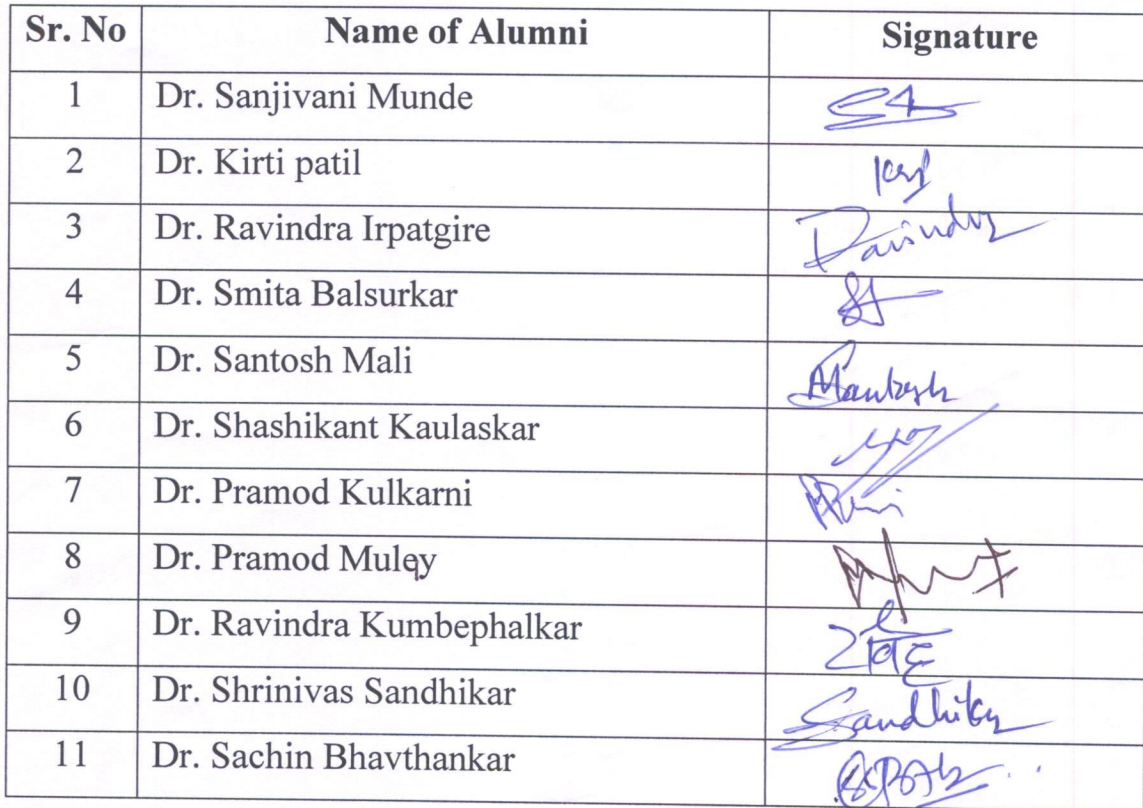 Sr. No Name of Alumni Signature
1 Dr. Sanjivani Munde
2 Dr. Kirti patil
3 Dr. Ravindra Irpatgire Ravindra
4 Dr. Smita Balsurkar
5 Dr. Santosh Mali
6 Dr. Shashikant Kaulaskar
7 Dr. Pramod Kulkarni
8 Dr. Pramod Muley
9 Dr. Ravindra Kumbephalkar
10 Dr. Shrinivas Sandhikar
11 Dr. Sachin Bhavthankar